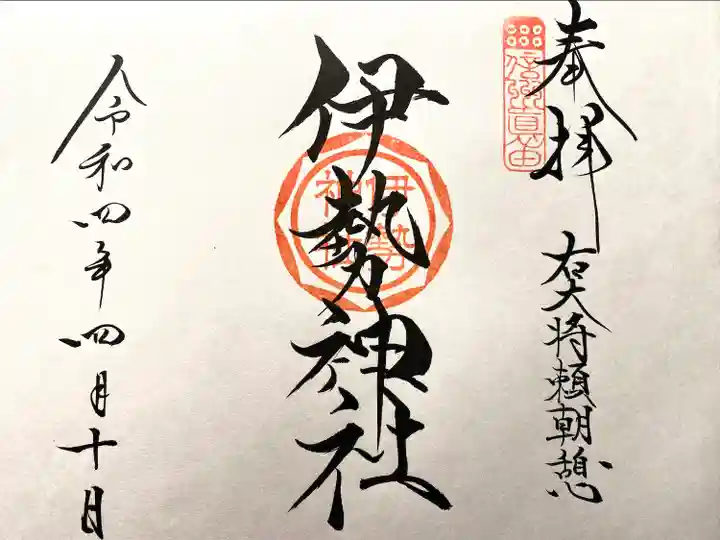 奉拝
信州真田
右大将頼朝憩
伊勢神社
伊勢
神社
令和四年四月十日